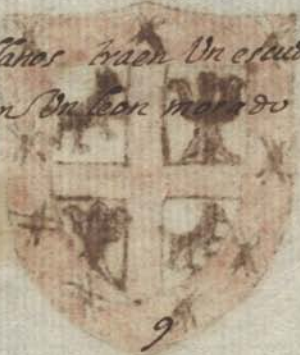 llanos traen Un escud
n Un leon morado
9